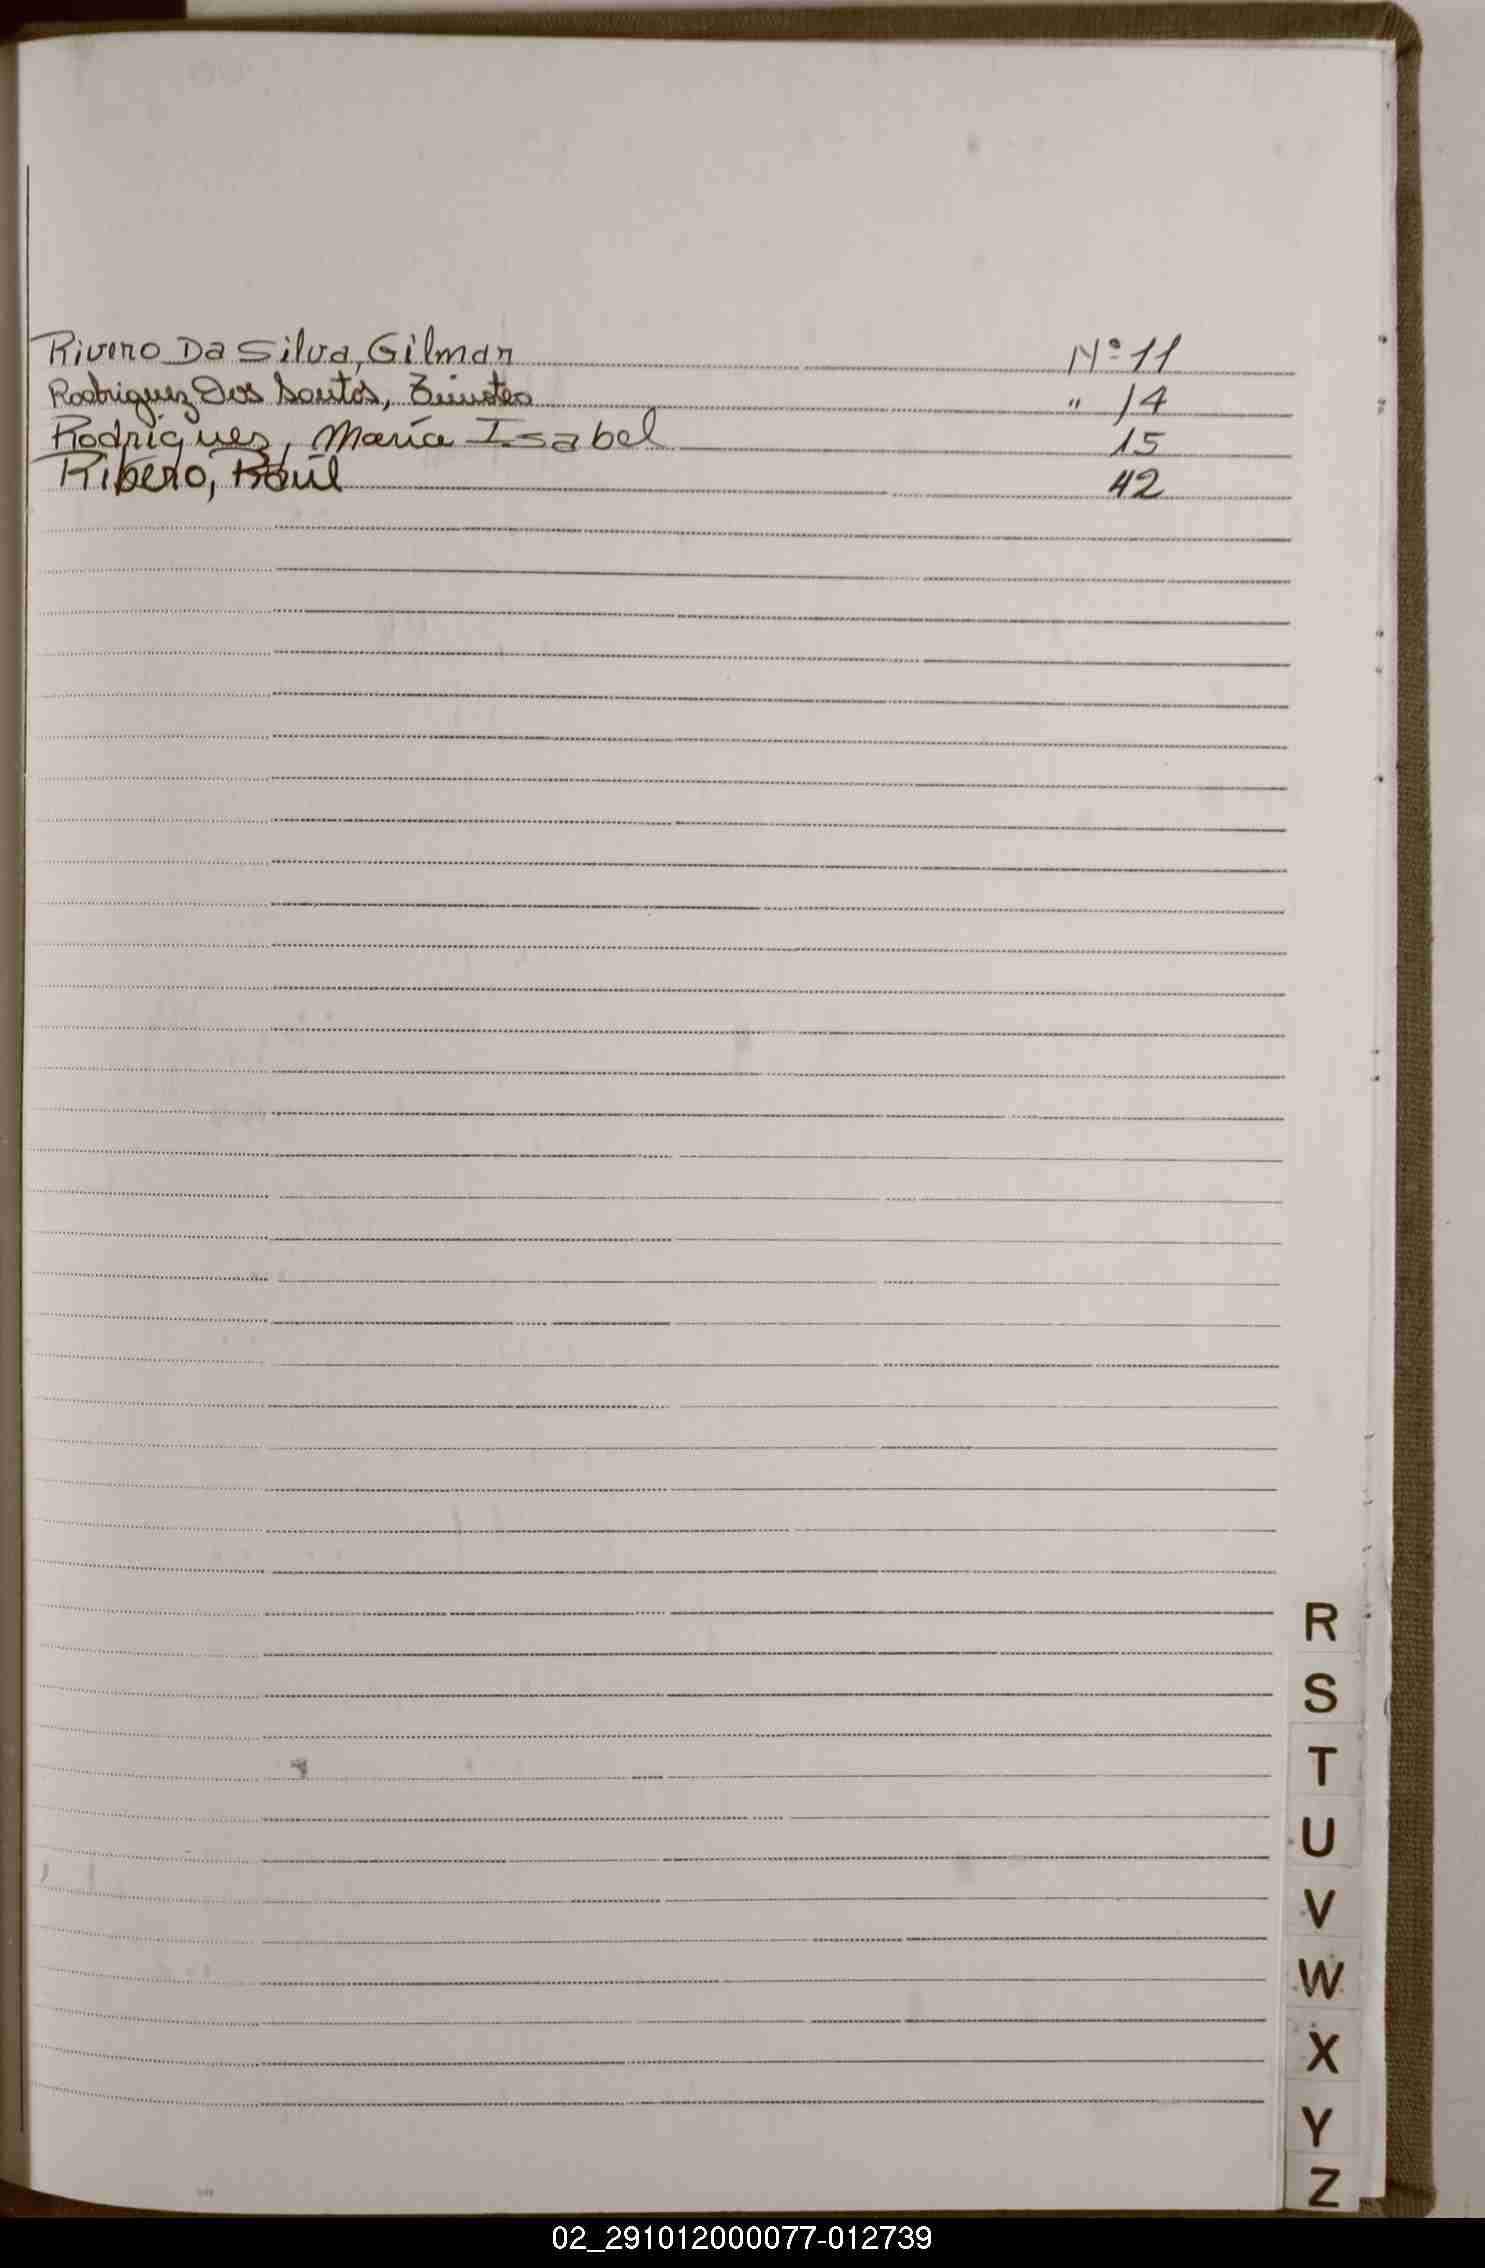 Rivero Da Silva, Gilmar Nº 11
Rodriguez Dos Santos, " 14
Rodriguez, María Isabel 15
Ribero, Raúl 42
R
S
T
U
V
W
X
Y
Z
02_291012000077-012739